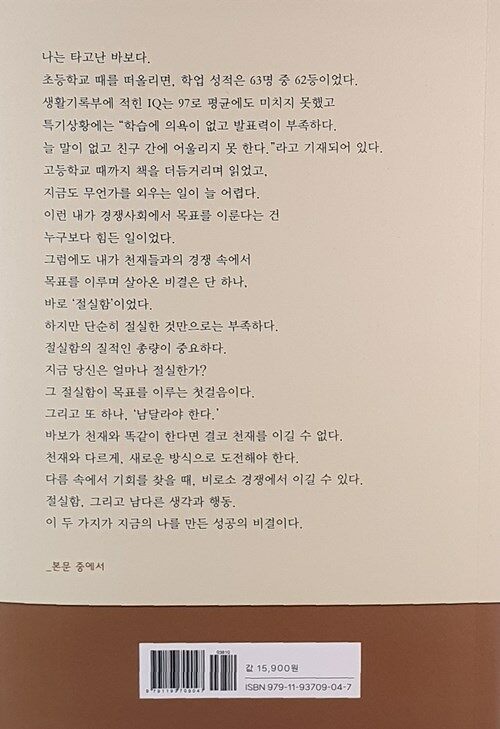 나는 타고난 바보다.
초등학교 때를 떠올리면, 학업 성적은 63명 중 62등이었다.
생활기록부에 적힌 IQ는 97로 평균에도 미치지 못했고
특기상황에는 “학습에 의욕이 없고 발표력이 부족하다.
늘 말이 없고 친구 간에 어울리지 못 한다.”라고 기재되어 있다.
고등학교 때까지 책을 더듬거리며 읽었고,
지금도 무언가를 외우는 일이 늘 어렵다.
이런 내가 경쟁사회에서 목표를 이룬다는 건
누구보다 힘든 일이었다.
그럼에도 내가 천재들과의 경쟁 속에서
목표를 이루며 살아온 비결은 단 하나,
바로 ‘절실함’이었다.
하지만 단순히 절실한 것만으로는 부족하다.
절실함의 질적인 총량이 중요하다.
지금 당신은 얼마나 절실한가?
그 절실함이 목표를 이루는 첫걸음이다.
그리고 또 하나, ‘남달라야 한다.’
바보가 천재와 똑같이 한다면 결코 천재를 이길 수 없다.
천재와 다르게, 새로운 방식으로 도전해야 한다.
다름 속에서 기회를 찾을 때, 비로소 경쟁에서 이길 수 있다.
절실함, 그리고 남다른 생각과 행동.
이 두 가지가 지금의 나를 만든 성공의 비결이다.
_본문 중에서
03810
값 15,900원
9 791193 709047
ISBN 979-11-93709-04-7